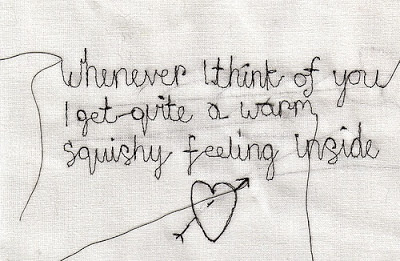 Whenever I think of you
I get quite a warm
squishy feeling inside